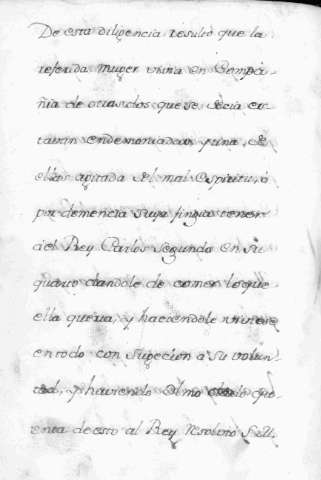 De esta diligencia resultó que la
referida muger vivia en Compa-
ñia de otras dos que se decia es-
tavan endemoniadas y una de
ellas agitada del mal espiritu, ó
por demencia suya fingia tener
al Rey Carlos Segundo en su
quarto dandole de comer lo que
ella queria, y haciendole
en todo con sugecion a su volun-
tad, y haviendo dado qu-
enta de esto al Rey resolvió S.M.